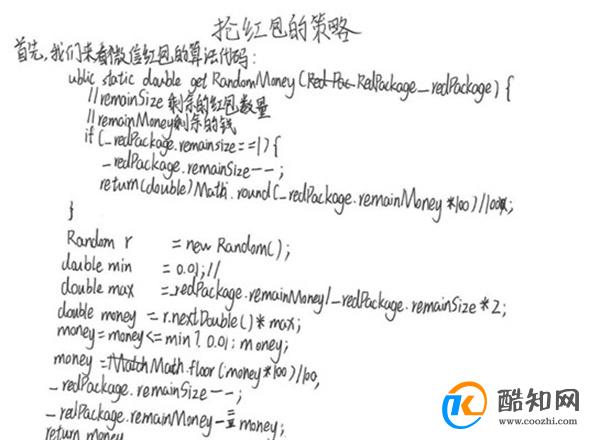 抢红包的策略
首先,我们来看微信红包的算法代码:
ublic static double get RandomMoney (Red Pac RedPackage_redPackage) {
//remainSize 剩余的红包数量
//remainMoney剩余的钱
if (_redPackage.remainsize==1) {
_redPackage.remainSize--;
return(double)Math.round(_redPackage.remainMoney*100)/100;
}
Random r =new Random();
double min =0.01;//
double max =_redPackage.remainMoney/_redPackage.remainSize*2;
double money =r.nextDouble()*max;
money=money<=min?0.01:money;
money =Match Math.floor(money*100)/100;
_redPackage.remainSize--;
_redPackage.remainMoney-=money;
return money
酷知网
www.coozhi.com